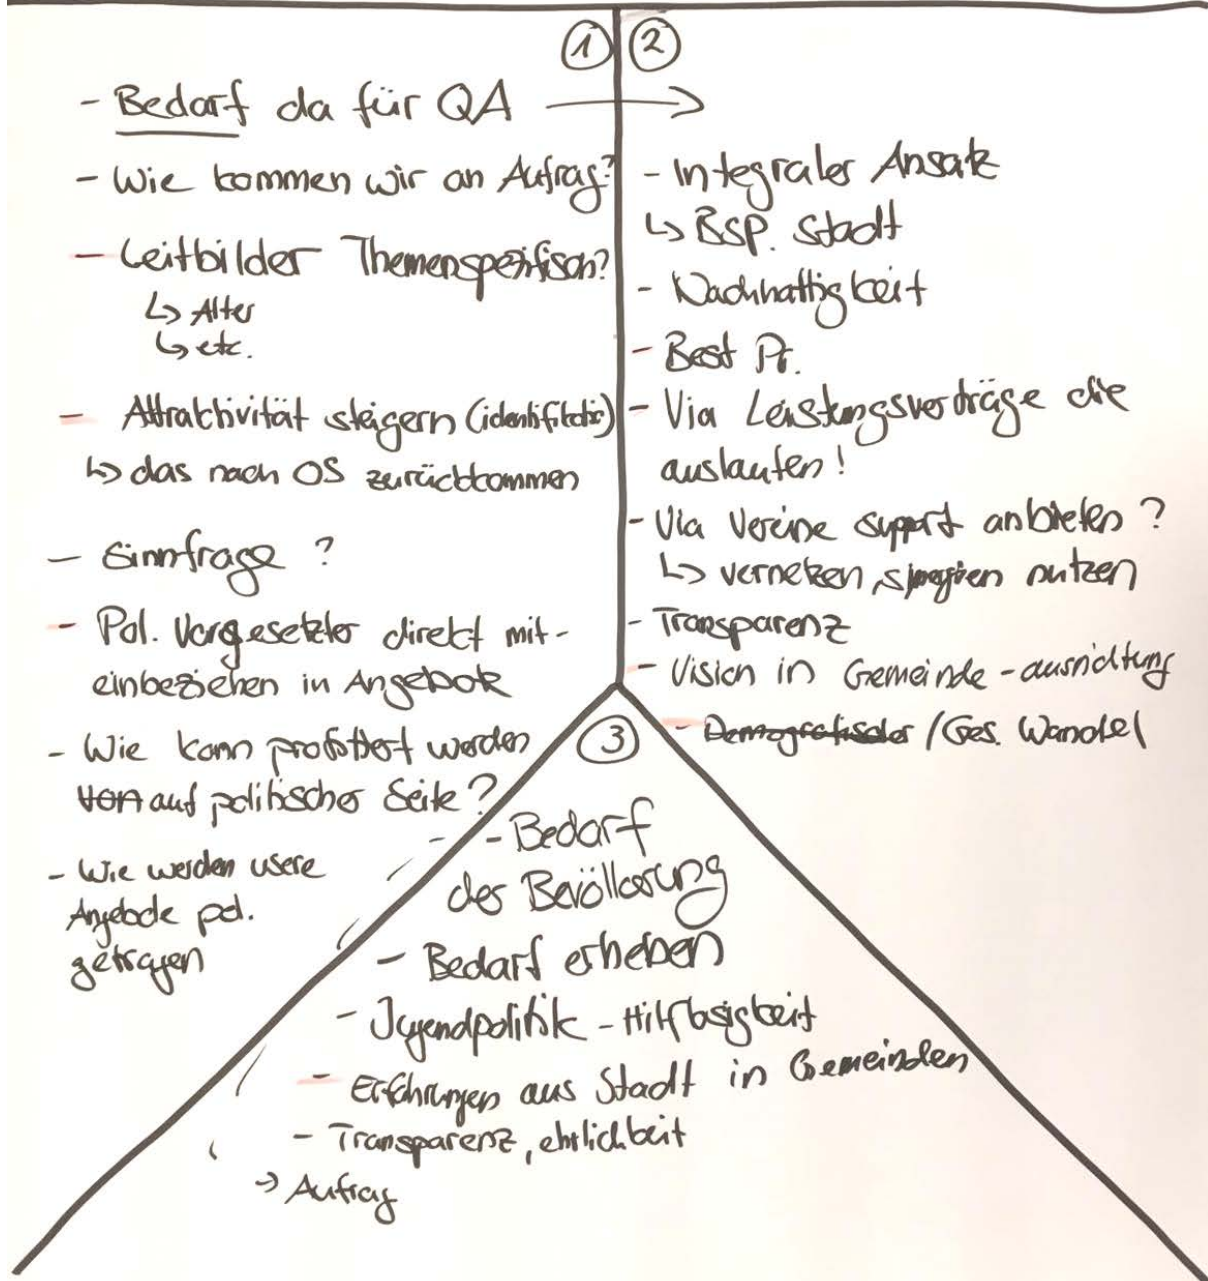 ①
- Bedarf da für QA →
- Wie kommen wir an Aufrag?
- Leitbilder Themenspezifisch?
↳ Alter
↳ etc.
- Attraktivität steigern (identifikatio)
↳ das nach OS zurückkommen
- Sinnfrage ?
- Pol. Vorgesetzter direkt mit-
einbeziehen in Angebote
- Wie kann profitiert werden
von auf politischer Seite?
- Wie werden usere
Angebode pol.
getragen
②
- Integraler Ansatz
↳ BSP. Stadt
- Nachhaltigkeit
- Best Pr.
- Via Leistungsverträge die
auslaufen!
- Via Vereine support anbieten ?
↳ vernetzen, synergien nutzen
- Transparenz
- Vision in Gemeinde-ausrichtung
- Demografischer / Ges. Wandel
③
- Bedarf
der Bevölkerung
- Bedarf erheben
- Jugendpolitik - Hilflosigkeit
- Erfahrungen aus Stadt in Gemeinden
- Transparenz, ehrlichkeit
→ Aufrag